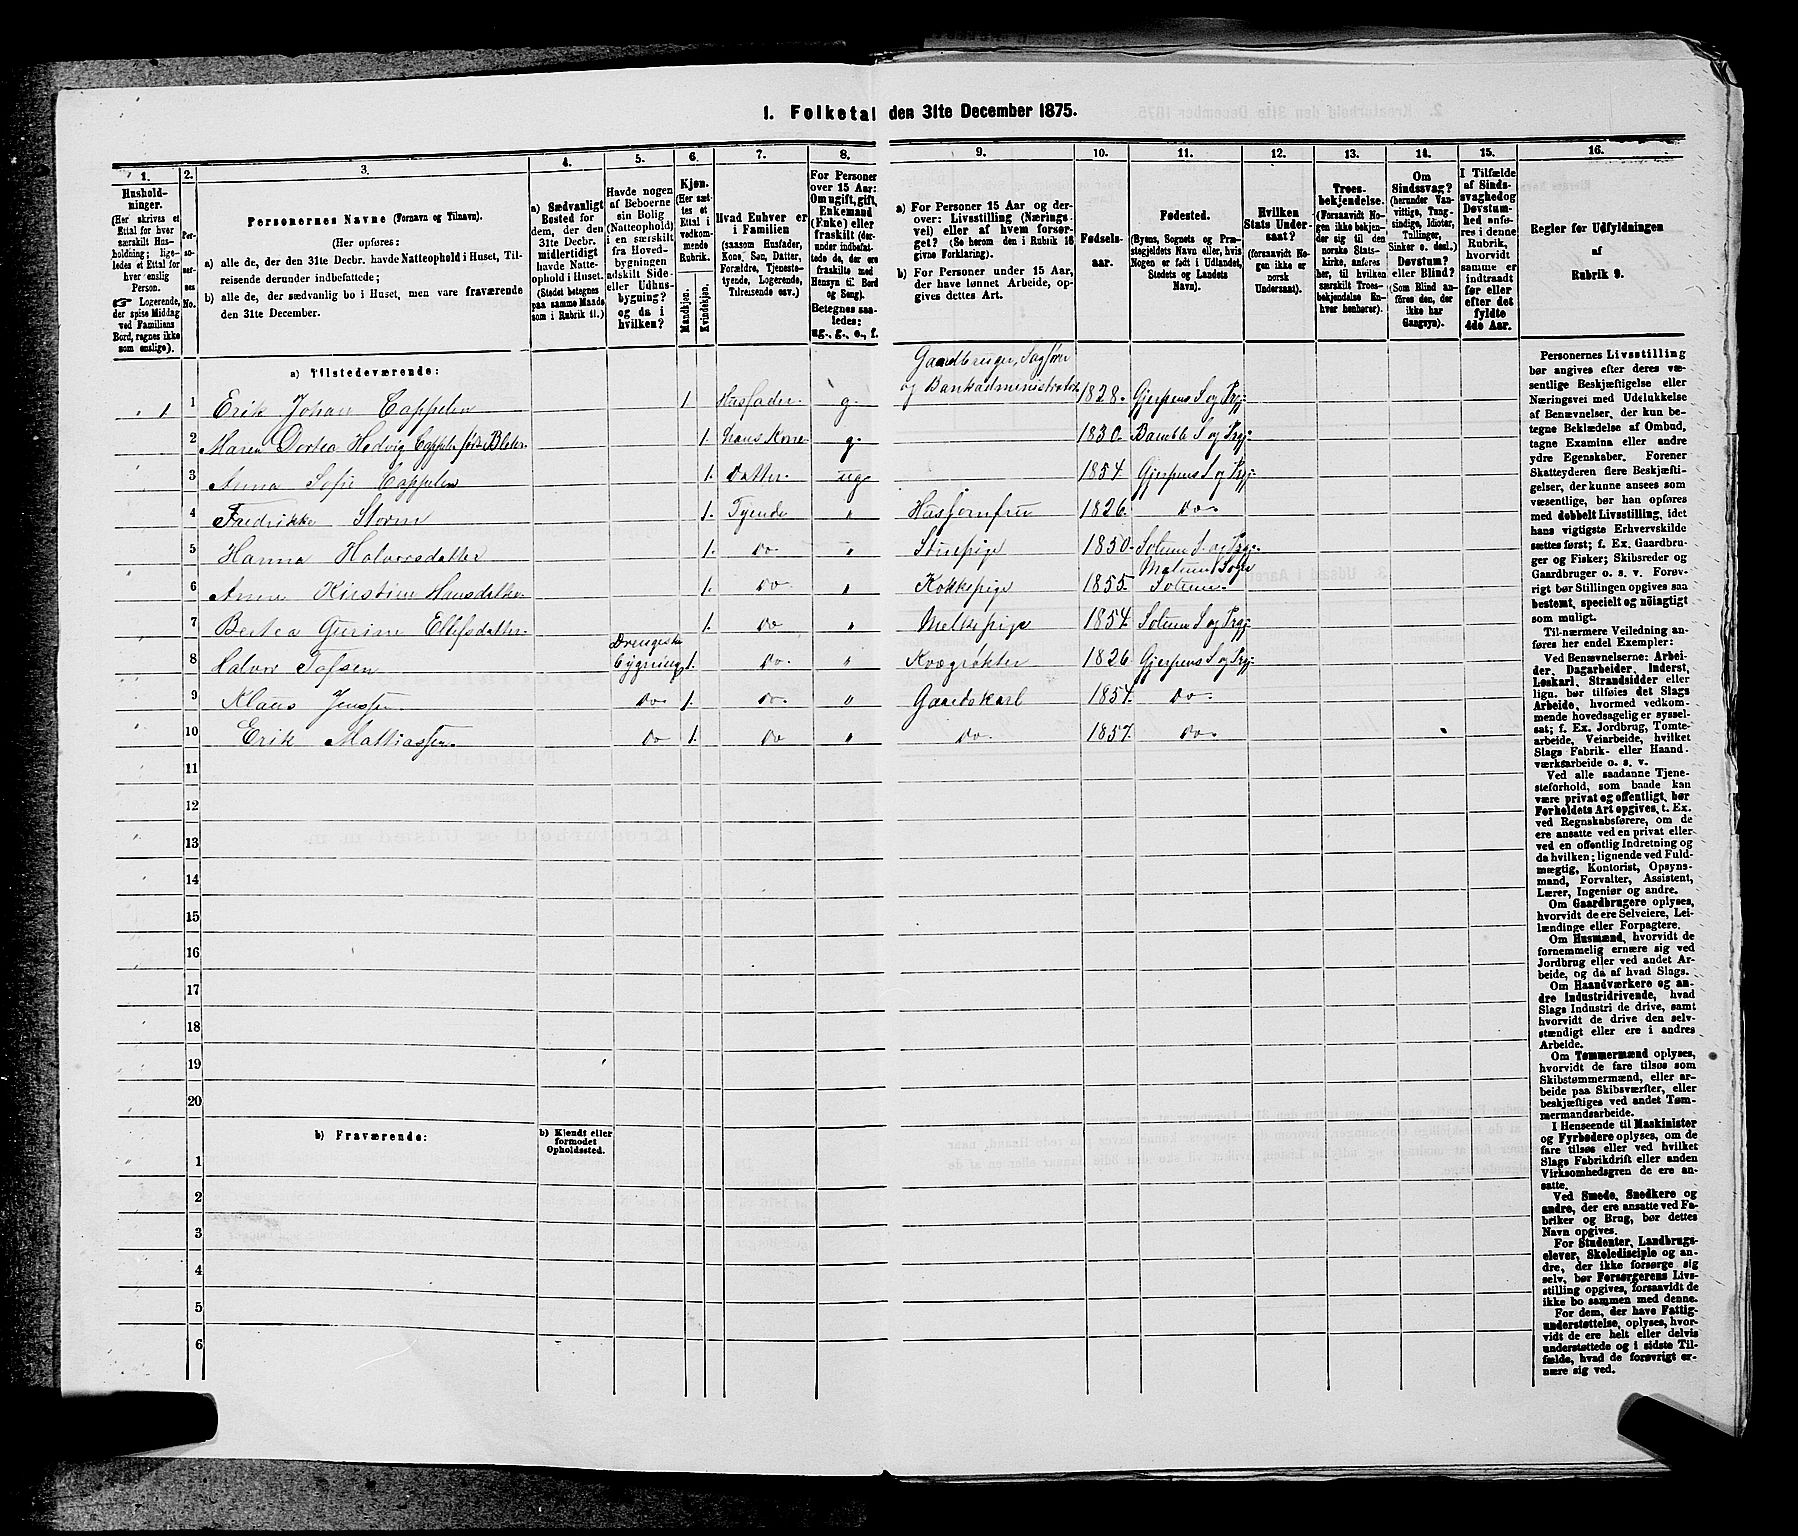 1. Folketal den 31te December 1875.
1. 2. 3. 4. 5. 6. 7. 8. 9. 10. 11. 12. 13. 14. 15. 16.
Husholdninger.
(Her skrives et
Ettal for hver
særskilt Husholdning;
ligeledes et Ettal for
hver enslig
Person.
☞ Logerende,
der spise Middag
ved Familiens
Bord, regnes ikke
som enslige).
Personernes No.
Personernes Navne (Fornavn og Tilnavn).
(Her opføres:
a) alle de, der den 31te Decbr. havde Natteophold i Huset, Tilreisende derunder indbefattede;
b) alle de, der sædvanlig bo i Huset, men vare fraværende
den 31te December.
a) Sædvanligt
Bosted for
dem, der den
31te Decbr.
midlertidigt
havde Natteophold i Huset.
(Stedet betegnes
paa samme Maade,
som i Rubrik 11.)
Havde nogen
af Beboerne
sin Bolig
(Natteophold)
i en særskilt
fra Hovedbygningen
adskilt Side-
eller Udhusbygning?
og da i
hvilken?
Kjøn.
(Her sættes et
Ettal i
vedkommende
Rubrik.
Mandkjøn.
Kvindekjøn.
Hvad Enhver er
i Familien
(saasom Husfader,
Kone, Søn, Datter,
Forældre, Tjenestetyende, Logerende,
Tilreisende osv.)
For Personer
over 15 Aar:
Om ugift, gift,
Enkemand
(Enke) eller
fraskilt (derunder indbefattede de, der ere
fraskilte med
Hensyn til Bord
og Seng).
Betegnes saaledes:
ug., g., e., f.
a) For Personer 15 Aar og derover: Livsstilling (Næringsvei) eller af hvem forsørget? (Se herom den i Rubrik 16
givne Forklaring).
b) For Personer under 15 Aar,
der have lønnet Arbeide, opgives dettes Art.
Fødselsaar.
Fødested.
(Byens, Sognets og Præstegjeldets Navn eller, hvis
Nogen er født i Udlandet,
Stedets og Landets
Navn).
Hvilken
Stats Undersaat?
(forsaavidt Nogen ikke er
norsk
Undersaat).
Troesbekjendelse.
(Forsaavidt Nogen ikke bekjender sig til den
norske Statskirke, anføres
her, til hvilken
særskilt Troesbekjendelse Enhver henhører).
Om
Sindssvag?
(herunder Vanvittige, Tungsindige, Idioter,
Tullinger,
Sinker o. desl.)
Døvstum?
eller Blind?
(Som Blind anføres den, der
ikke har
Gangsyn).
I Tilfælde
af Sindssvaghed og
Døvstumhed anføres i denne
Rubrik,
hvorvidt
samme er
indtraadt
før eller
efter det
fyldte
4de Aar.
Regler for Udfyldningen
af
Rubrik 9.
a) Tilstedeværende:
Gaardbruger, Sagfører
1 1 Erik Johan Cappelen 1 Husfader g. og Bankadministrator 1828. Gjerpens S og Prgj.
2 Maren Dortea Hedvig Cappelen født Blehr 1. hans Kone g. 1830. Bamble S og Prgj.
3 Anna Sofie Cappelen 1. Datter ug 1854 Gjerpens S og Prgj.
4 Fredrikke Storm 1. Tyende " Husjomfru 1826. do
5 Hanna Halvorsdatter 1. do " Stuepige 1850. Solum S. og Prgj.
6 Anne Kirstine Hansdatter 1. do " Kokkepige 1855. Melum Sogn Solum
7 Bertea Gurine Ellefsdatter 1. do " Melkepige 1854. Solum S og Prgj.
8 Halvor Tofsen Drengestubygning 1. do. " Kvægrøkter 1826 Gjerpens S og Prgj.
9 Klaus Jenssen do 1. do. " Gaardskarl 1854. do.
10 Erik Mathiassen do 1. do " do. 1857. do
11
12
13
14
15
16
17
18
19
20
b) Fraværende:
b) Kjendt eller
formodet
Opholdssted.
1
2
3
4
5
6
Personernes Livsstilling
bør angives efter deres væsentlige Beskjæftigelse eller
Næringsvei med Udelukkelse
af Benævnelser, der kun betegne Beklædelse af Ombud,
tagne Examina eller andre
ydre Egenskaber. Forener
Skatteyderen flere Beskjæftigelser, der kunne ansees som
væsentlige, bør han opføres
med dobbelt Livsstilling, idet
hans vigtigste Erhvervskilde
sættes først; f. Ex. Gaardbruger og Fisker; Skibsreder og
Gaardbruger o. s. v. Forøvrigt bør Stillingen opgives saa
bestemt, specielt og nøiagtigt
som muligt.
Til nærmere Veiledning anføres her endel Exempler:
Ved Benævnelserne: Arbeider, Dagarbeider, Inderst,
Løskarl, Strandsidder eller
lign. bør tilføies det Slags
Arbeide, hvormed vedkommende hovedsagelig er sysselsat; f. Ex. Jordbrug, Tomtearbeide, Veiarbeide, hvilket
Slags Fabrik- eller Haandværksarbeide o. s. v.
Ved alle saadanne Tjenesteforhold, som baade kan
være privat og offentligt, bør
Forholdets Art opgives, t. Ex.
ved Regnskabsførere, om de
ere ansatte ved en privat eller
ved en offentlig Indretning og
da hvilken; lignende ved Fuldmægtig, Kontorist, Opsynsmand, Forvalter, Assistent,
Lærer, Ingeniør og andre.
Om Gaardbrugere oplyses,
hvorvidt de ere Selveiere, Leilændinge eller Forpagtere.
Om Husmænd, hvorvidt de
fornemmelig ernære sig ved
Jordbrug eller ved andet Arbeide, og da af hvad Slags.
Om Haandværkere og andre Industridrivende, hvad
Slags Industri de drive, samt
hvorvidt de drive den selvstændigt eller ere i andres
Arbeide.
Om Tømmermænd oplyses,
hvorvidt de fare tilsøs som
Skibstømmermænd, eller arbeide paa Skibsværfter, eller
beskjæftiges ved andet Tømmermandsarbeide.
I Henseende til Maskinister
og Fyrbødere oplyses, om de
fare tilsøs eller ved hvilket
Slags Fabrikdrift eller anden
Virksomhedsgren de ere ansatte.
Ved Smede, Snedkere og
andre, der ere ansatte ved Fabriker og Brug, bør dettes
Navn opgives.
For Studenter, Landbrugselever, Skoledisciple og andre, der ikke forsørge sig
selv, bør Forsørgerens Livsstilling opgives, forsaavidt de
ikke bo sammen med denne.
For dem, der have Fattigunderstøttelse, oplyses, hvorvidt de ere helt eller delvis
understøttede og i sidste Tilfælde, hvad de forøvrigt ernære sig ved.